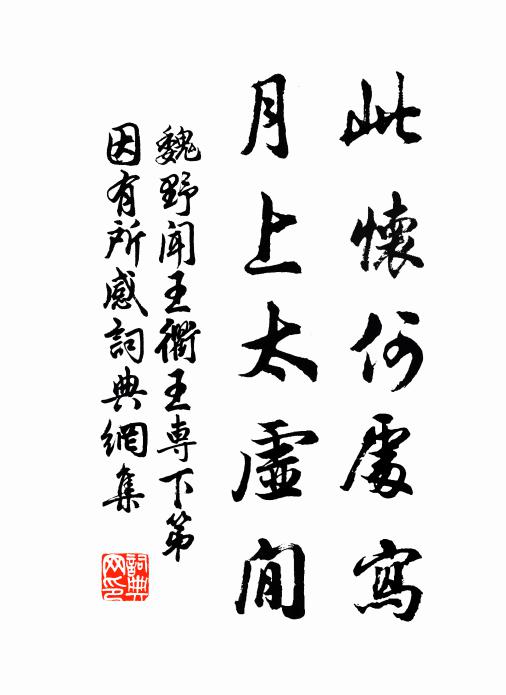 此懷何處寫
月上太虛間
魏野聞王衢王專下第
因有所感詞典網集
詞典網印